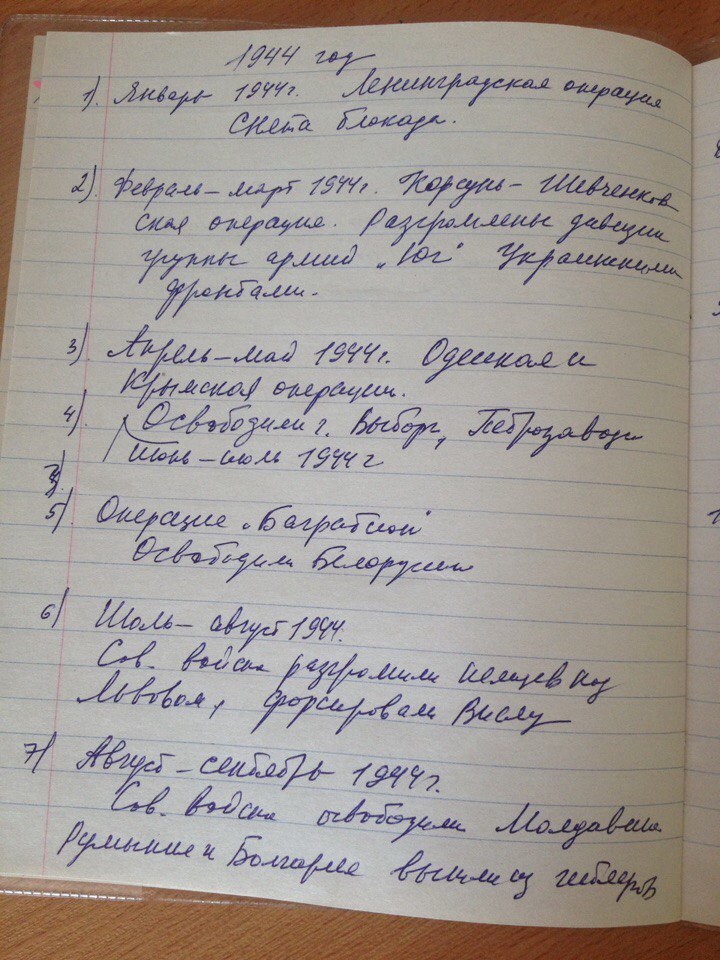 1944 год
1). Январь 1944г. Ленинградская операция
Снята блокада.
2). Февраль – март 1944г. Корсунь - Шевченков
ская операция. Разгромлены дивизии
группы армий „Юг" Украинскими
фронтами.
3) Апрель – май 1944г. Одесская и
Крымская операции.
4). Освободили г. Выборг, Петрозаводск
Июнь – июль 1944 г
5) Операция „Багратион"
Освободили Белоруссию
6) Июль – август 1944.
Сов. войска разгромили немцев под
Львовом, форсировали Вислу
7) Август – сентябрь 1944 г.
Сов. войска освободили Молдавию
Румыния и Болгария вышли из